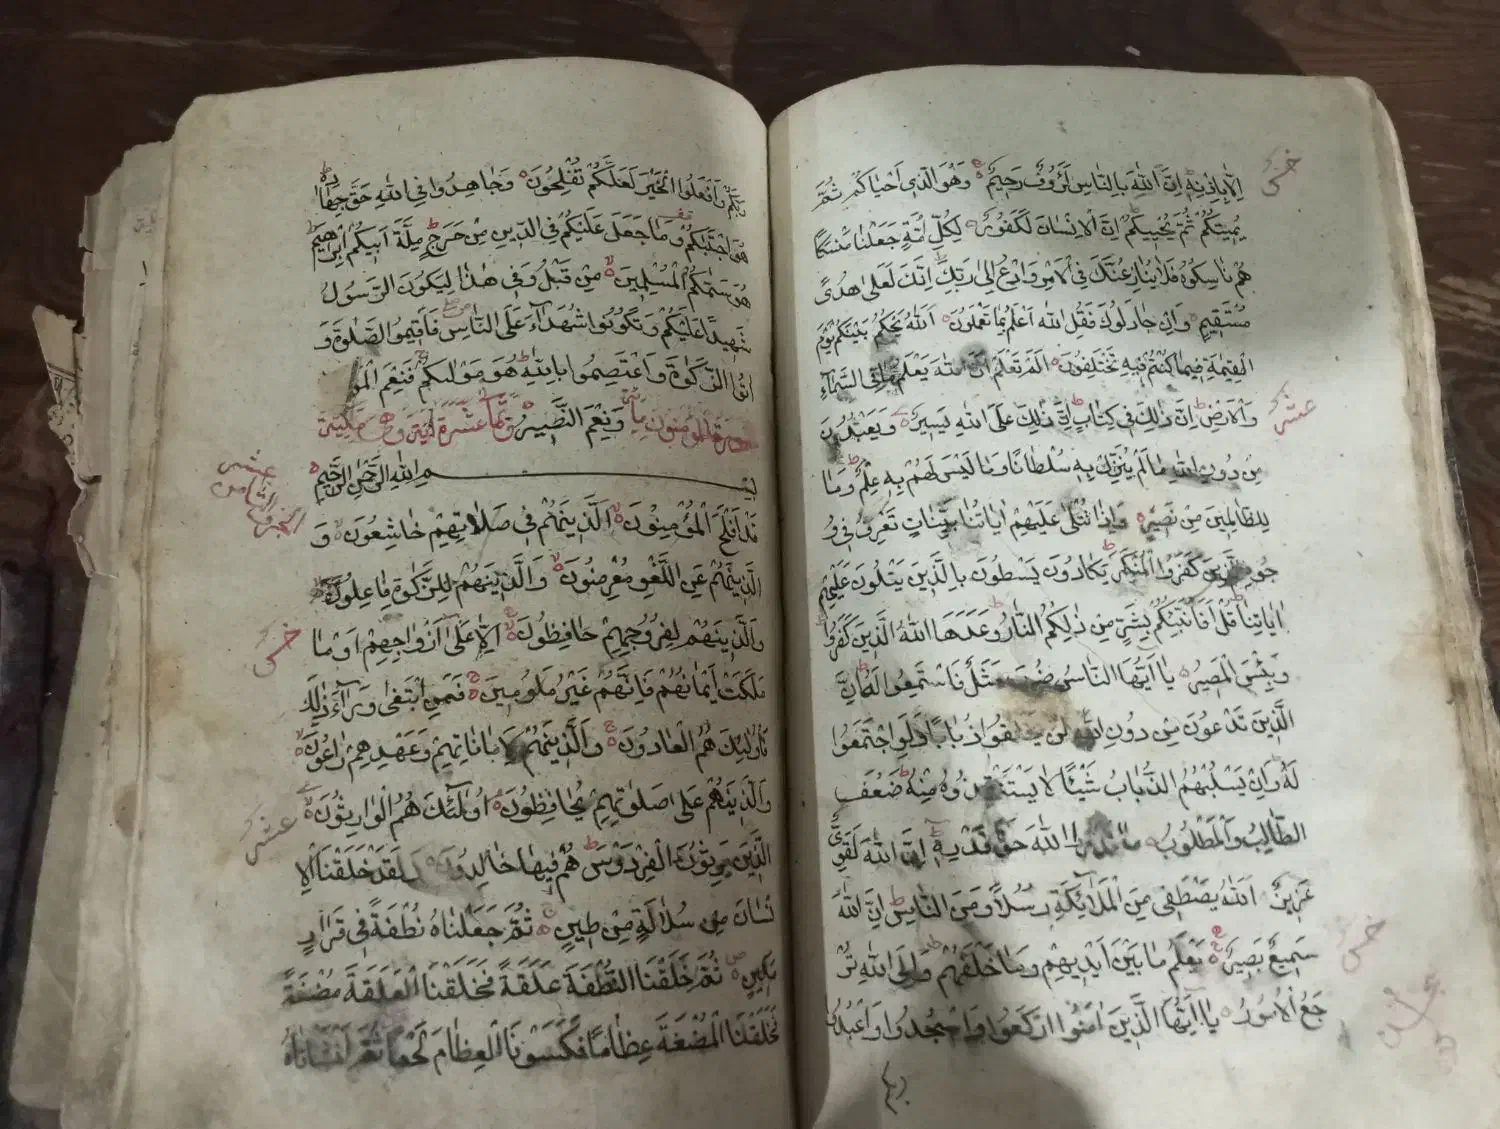 اِلَّا بِاِذْنِهِ اِنَّ اللهَ بِالنَّاسِ لَرَؤُفٌ رَحِيمٌ وَهُوَ الَّذِي اَحْيَاكُمْ ثُمَّ
خمس
يُمِيتُكُمْ ثُمَّ يُحْيِيكُمْ اِنَّ الْاِنْسَانَ لَكَفُورٌ لِكُلِّ اُمَّةٍ جَعَلْنَا مَنْسَكًا
هُمْ نَاسِكُوهُ فَلَا يُنَازِعُنَّكَ فِي الْاَمْرِ وَادْعُ اِلَى رَبِّكَ اِنَّكَ لَعَلَى هُدًى
مُسْتَقِيمٍ وَاِنْ جَادَلُوكَ فَقُلِ اللهُ اَعْلَمُ بِمَا تَعْمَلُونَ اَللهُ يَحْكُمُ بَيْنَكُمْ يَوْمَ
الْقِيٰمَةِ فِيمَا كُنْتُمْ فِيهِ تَخْتَلِفُونَ اَلَمْ تَعْلَمْ اَنَّ اللهَ يَعْلَمُ مَا فِي السَّمَاءِ
وَالْاَرْضِ اِنَّ ذٰلِكَ فِي كِتَابٍ اِنَّ ذٰلِكَ عَلَى اللهِ يَسِيرٌ وَيَعْبُدُونَ
عشر
مِنْ دُونِ اللهِ مَا لَمْ يُنَزِّلْ بِهِ سُلْطَانًا وَمَا لَيْسَ لَهُمْ بِهِ عِلْمٌ وَمَا
لِلظَّالِمِينَ مِنْ نَصِيرٍ وَاِذَا تُتْلَى عَلَيْهِمْ اٰيَاتُنَا بَيِّنَاتٍ تَعْرِفُ فِي وُ
جُوهِ الَّذِينَ كَفَرُوا الْمُنْكَرَ يَكَادُونَ يَسْطُونَ بِالَّذِينَ يَتْلُونَ عَلَيْهِمْ
اٰيَاتِنَا قُلْ اَفَاُنَبِّئُكُمْ بِشَرٍّ مِنْ ذٰلِكُمُ النَّارُ وَعَدَهَا اللهُ الَّذِينَ كَفَرُوا
وَبِئْسَ الْمَصِيرُ يَا اَيُّهَا النَّاسُ ضُرِبَ مَثَلٌ فَاسْتَمِعُوا لَهُ اِنَّ
الَّذِينَ تَدْعُونَ مِنْ دُونِ اللهِ لَنْ يَخْلُقُوا ذُبَابًا وَلَوِ اجْتَمَعُوا
لَهُ وَاِنْ يَسْلُبْهُمُ الذُّبَابُ شَيْئًا لَا يَسْتَنْقِذُوهُ مِنْهُ ضَعُفَ
الطَّالِبُ وَالْمَطْلُوبُ مَا قَدَرُوا اللهَ حَقَّ قَدْرِهِ اِنَّ اللهَ لَقَوِيٌّ
عَزِيزٌ اَللهُ يَصْطَفِي مِنَ الْمَلَائِكَةِ رُسُلًا وَمِنَ النَّاسِ اِنَّ اللهَ
سَمِيعٌ بَصِيرٌ يَعْلَمُ مَا بَيْنَ اَيْدِيهِمْ وَمَا خَلْفَهُمْ وَاِلَى اللهِ تُرْ
خمس
جَعُ الْاُمُورُ يَا اَيُّهَا الَّذِينَ اٰمَنُوا ارْكَعُوا وَاسْجُدُوا وَاعْبُدُوا
ربكم
رَبَّكُمْ وَافْعَلُوا الْخَيْرَ لَعَلَّكُمْ تُفْلِحُونَ وَجَاهِدُوا فِي اللهِ حَقَّ جِهَادِهِ
هُوَ اجْتَبٰكُمْ وَمَا جَعَلَ عَلَيْكُمْ فِي الدِّينِ مِنْ حَرَجٍ مِلَّةَ اَبِيكُمْ اِبْرٰهِيمَ
هُوَ سَمّٰكُمُ الْمُسْلِمِينَ مِنْ قَبْلُ وَفِي هٰذَا لِيَكُونَ الرَّسُولُ
شَهِيدًا عَلَيْكُمْ وَتَكُونُوا شُهَدَاءَ عَلَى النَّاسِ فَاَقِيمُوا الصَّلٰوةَ وَ
اٰتُوا الزَّكٰوةَ وَاعْتَصِمُوا بِاللهِ هُوَ مَوْلٰىكُمْ فَنِعْمَ الْمَوْ
وَنِعْمَ النَّصِيرُ سورة المؤمنون مائة وثمان عشرة اية وهي مكية
بِسْمِ اللهِ الرَّحْمٰنِ الرَّحِيمِ
الجزو الثامن عشر
قَدْ اَفْلَحَ الْمُؤْمِنُونَ الَّذِينَ هُمْ فِي صَلَاتِهِمْ خَاشِعُونَ وَ
الَّذِينَ هُمْ عَنِ اللَّغْوِ مُعْرِضُونَ وَالَّذِينَ هُمْ لِلزَّكٰوةِ فَاعِلُونَ
وَالَّذِينَ هُمْ لِفُرُوجِهِمْ حَافِظُونَ اِلَّا عَلَى اَزْوَاجِهِمْ اَوْ مَا
خمس
مَلَكَتْ اَيْمَانُهُمْ فَاِنَّهُمْ غَيْرُ مَلُومِينَ فَمَنِ ابْتَغَى وَرَاءَ ذٰلِكَ
فَاُولٰئِكَ هُمُ الْعَادُونَ وَالَّذِينَ هُمْ لِاَمَانَاتِهِمْ وَعَهْدِهِمْ رَاعُونَ
وَالَّذِينَ هُمْ عَلَى صَلَوَاتِهِمْ يُحَافِظُونَ اُولٰئِكَ هُمُ الْوَارِثُونَ
عشر
الَّذِينَ يَرِثُونَ الْفِرْدَوْسَ هُمْ فِيهَا خَالِدُونَ وَلَقَدْ خَلَقْنَا الْاِ
نْسَانَ مِنْ سُلَالَةٍ مِنْ طِينٍ ثُمَّ جَعَلْنَاهُ نُطْفَةً فِي قَرَارٍ
مَكِينٍ ثُمَّ خَلَقْنَا النُّطْفَةَ عَلَقَةً فَخَلَقْنَا الْعَلَقَةَ مُضْغَةً
فَخَلَقْنَا الْمُضْغَةَ عِظَامًا فَكَسَوْنَا الْعِظَامَ لَحْمًا ثُمَّ اَنْشَأْنَاهُ